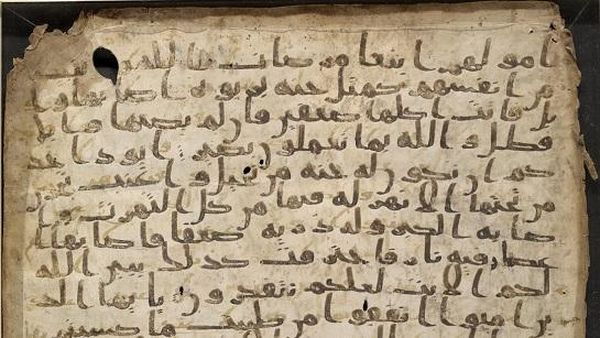 ا مولهم ابتغا مرضات الله وتثبيتا
من انفسهم كمثل جنه بربوه اصابها وا
بل فاتت اكلها ضعفين فان لم يصبها وا بل
فطل و الله بما تعملون بصير ايود احد
كم ان تكون له جنه من نخيل و اعنب تجري
من تحتها الانهر له فيها من كل الثمرت وا
صابه الكبر وله ذريه ضعفا فاصابها ا
عصار فيه نار فاحترقت كذلك يبين الله
لكم الايت لعلكم تتفكرون يا يها الذ
ين امنوا انفقوا من طيبت ما كسبتم